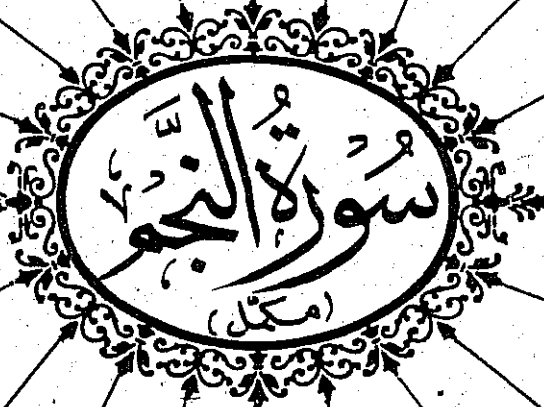 سُورَةُ النَّجْمِ
(مکمّل)